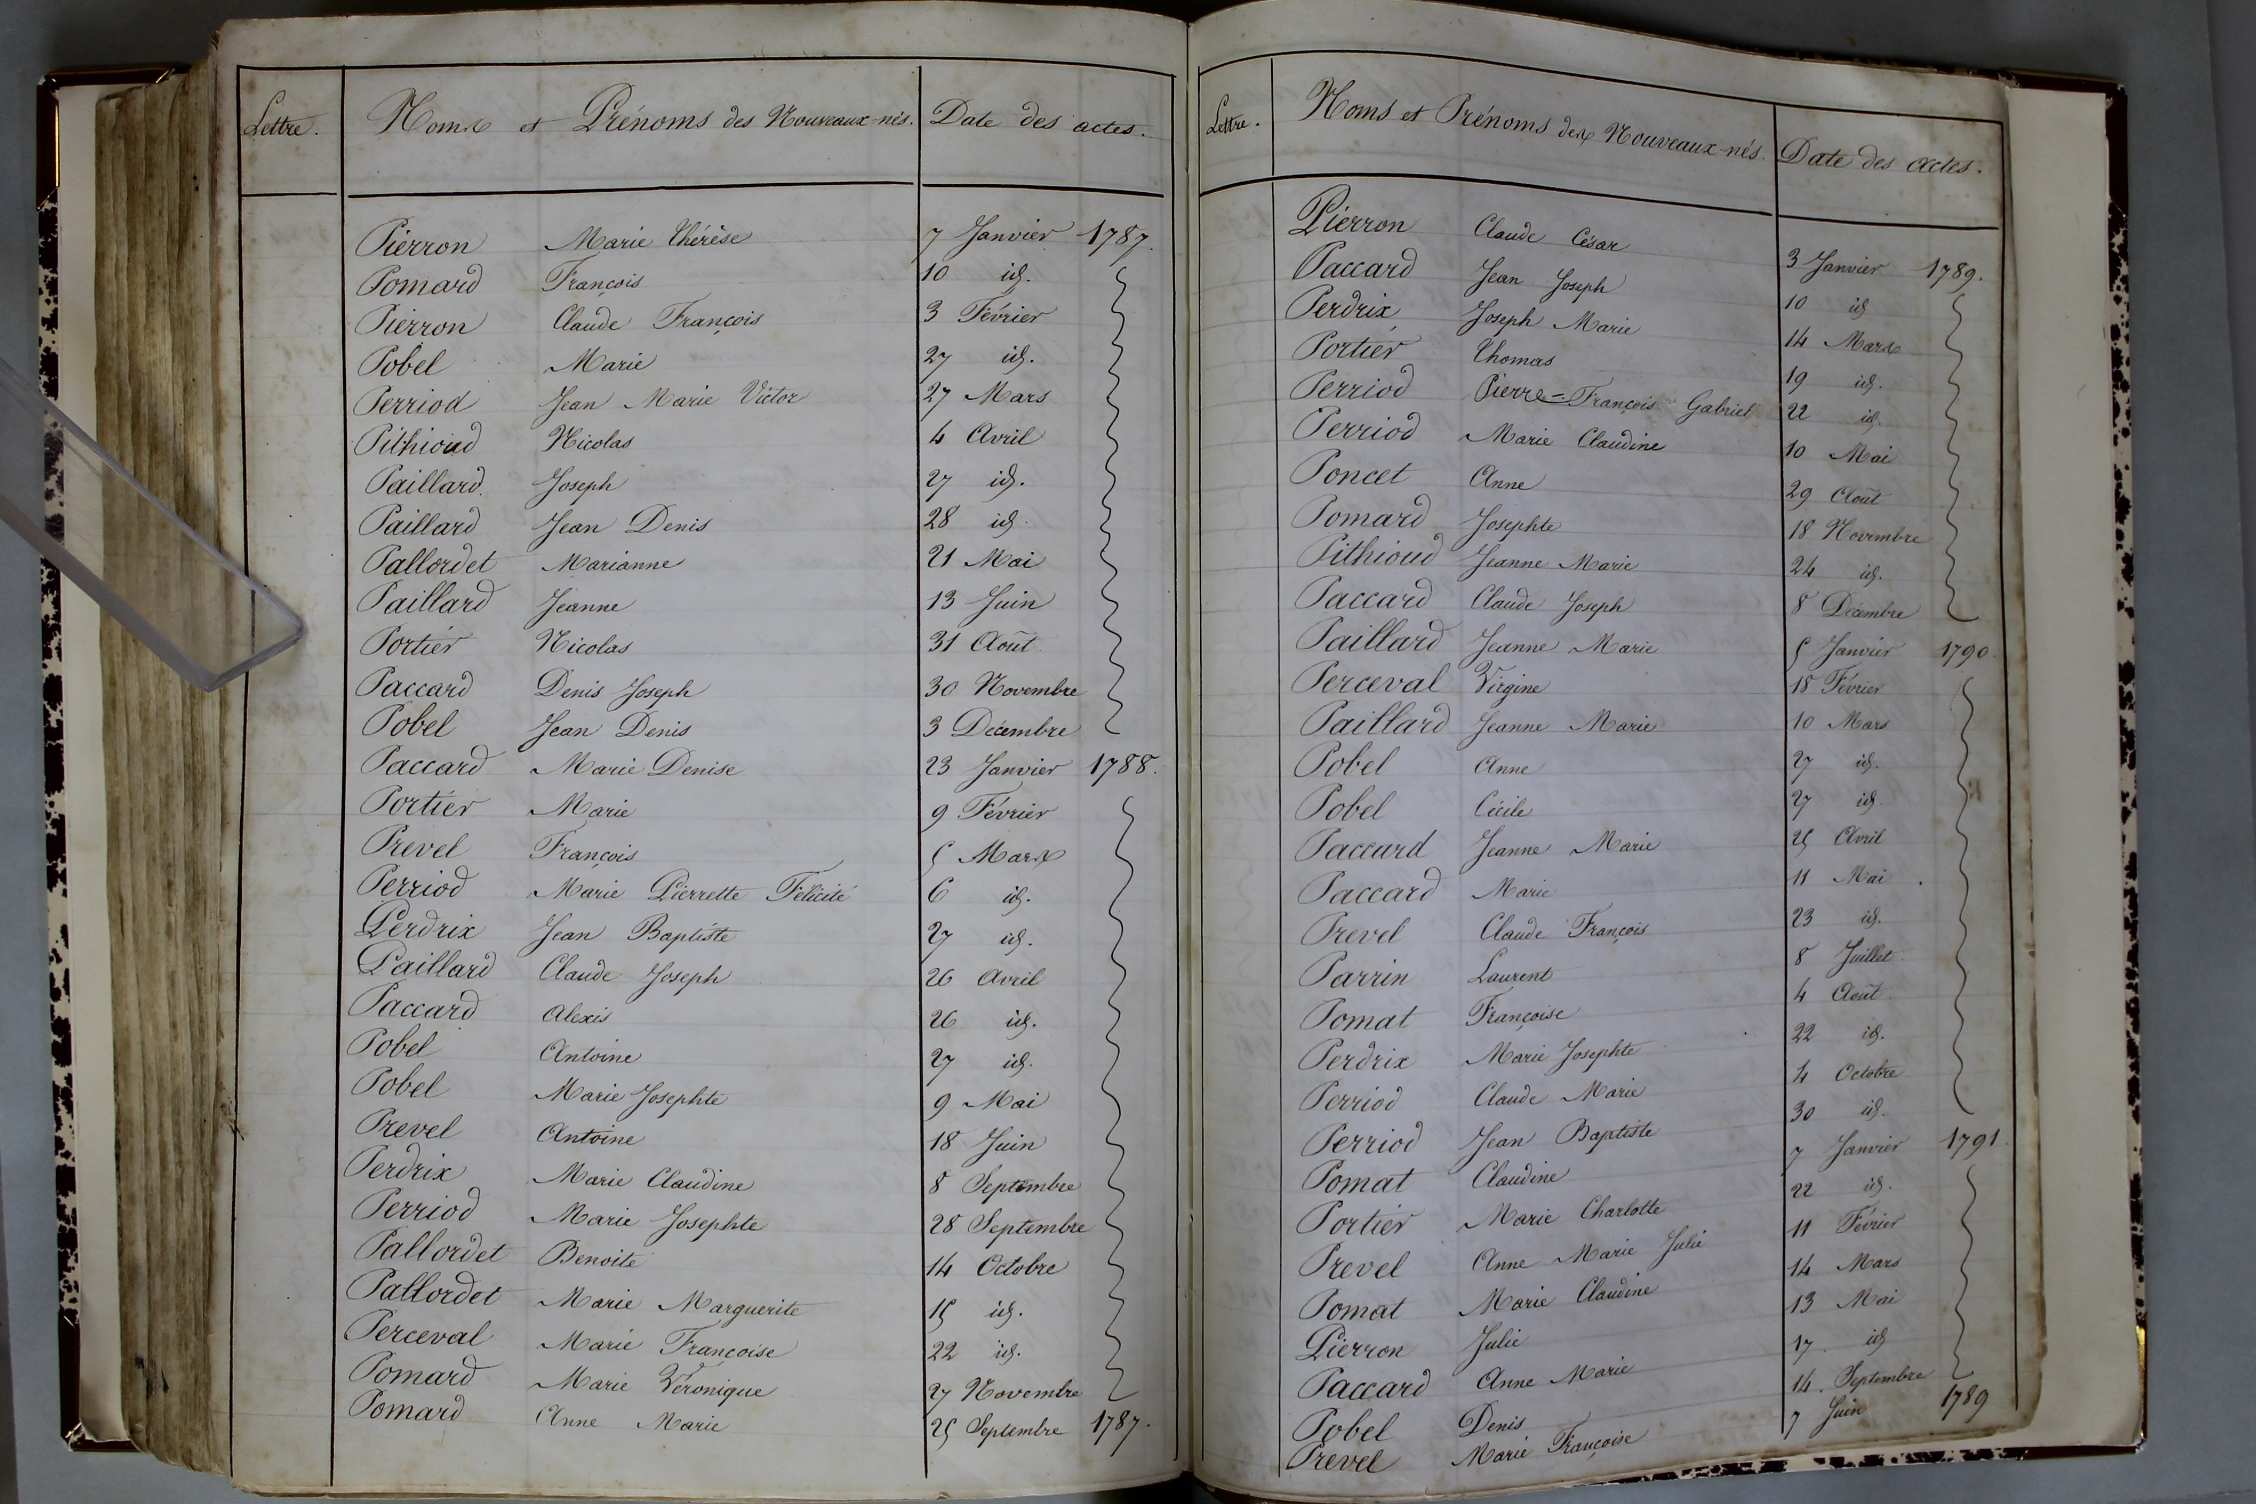 Lettre. Noms et Prénoms des Nouveaux-nés. Date des actes.
Pierron Marie Thérèse 7 Janvier 1787.
Pomard François 10 id.
Pierron Claude François 3 Février
Pobel Marie 27 id.
Perriod Jean Marie Victor 27 Mars
Pithioud Nicolas 4 Avril
Paillard. Joseph 27 id.
Paillard Jean Denis 28 id.
Pallordet Marianne 21 Mai
Paillard Jeanne 13 Juin
Portier Nicolas 31 Août
Paccard Denis Joseph 30 Novembre
Pobel Jean Denis 3 Décembre
Paccard Marie Denise 23 Janvier 1788.
Portier Marie 9 Février
Prevel François 5 Mars
Perriod Marie Pierrette Félicité 6 id.
Perdrix Jean Baptiste 27 id.
Paillard Claude Joseph 26 Avril
Paccard Alexis 26 id.
Pobel Antoine 27 id.
Pobel Marie Josephte 9 Mai
Prevel Antoine 18 Juin
Perdrix Marie Claudine 8 Septembre
Perriod Marie Josephte 28 Septembre
Pallordet Benoite 14 Octobre
Pallordet Marie Marguerite 15 id.
Perceval Marie Françoise 22 id.
Pomard Marie Véronique 27 Novembre
Pomard Anne Marie 25 Septembre 1787.
Lettre. Noms et Prénoms des Nouveaux-nés. Date des actes.
Pierron Claude César 3 Janvier 1789.
Paccard Jean Joseph 10 id
Perdrix Joseph Marie 14 Mars
Portier Thomas 19 id.
Perriod Pierre-François Gabriel 22 id.
Perriod Marie Claudine 10 Mai
Poncet Anne 29 Août
Pomard Josephte 18 Novembre
Pithioud Jeanne Marie 24 id.
Paccard Claude Joseph 8 Décembre
Paillard Jeanne Marie 5 Janvier 1790.
Perceval Virgine 18 Février
Paillard Jeanne Marie 10 Mars
Pobel Anne 27 id.
Pobel Cécile 27 id.
Paccard Jeanne Marie 25 Avril
Paccard Marie 11 Mai.
Prevel Claude François 23 id.
Parrin Laurent 8 Juillet
Pomat Françoise 4 Août
Perdrix Marie Josephte 22 id.
Perriod Claude Marie 4 Octobre
Perriod Jean Baptiste 30 id.
Pomat Claudine 7 Janvier 1791.
Portier Marie Charlotte 22 id.
Prevel Anne Marie Julie 11 Février
Pomat Marie Claudine 14 Mars
Pierron Julie 13 Mai
Paccard Anne Marie 17 id
Pobel Denis 14 Septembre
Prevel Marie Françoise 7 Juin 1789